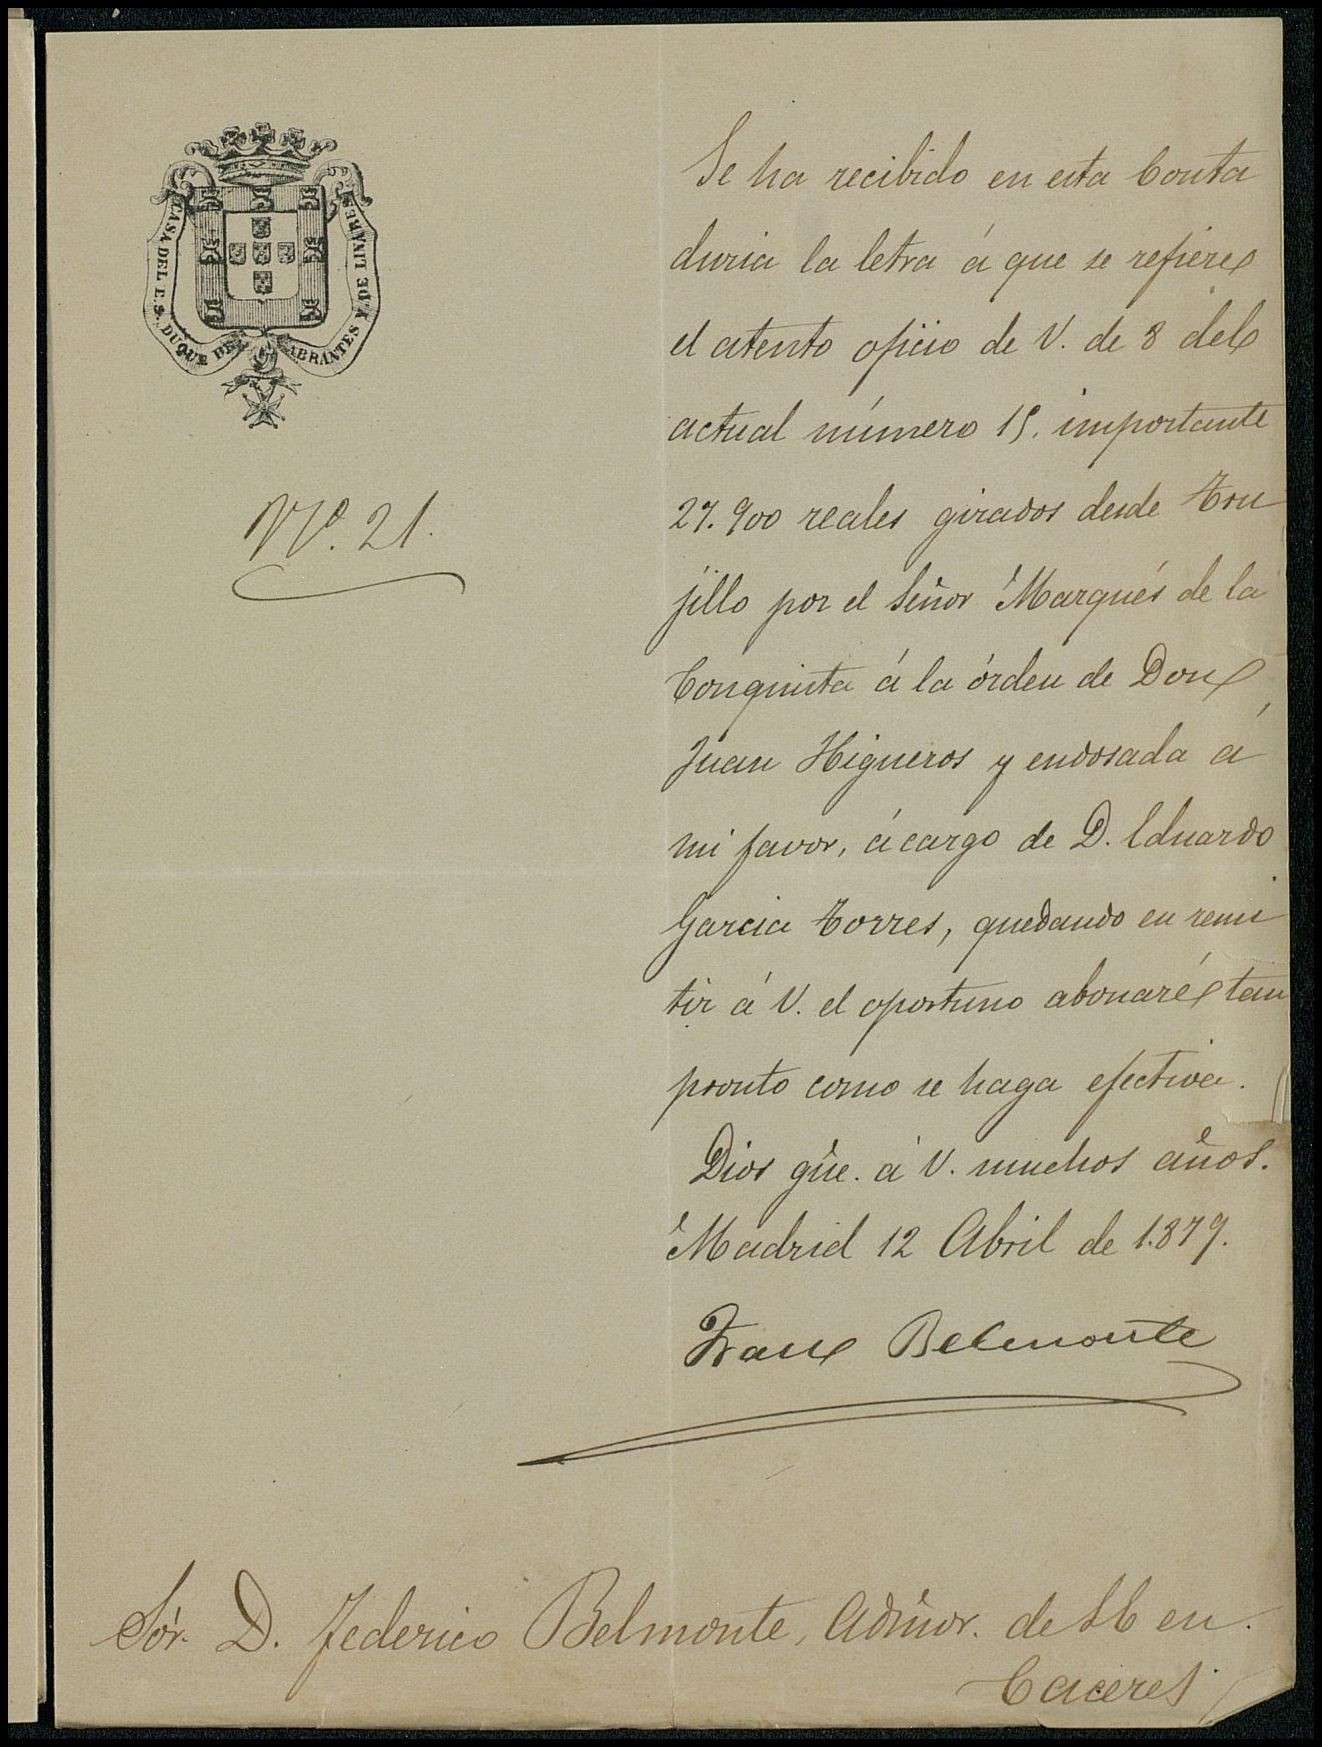 CASA DEL E.S. DUQUE DE ABRANTES Y DE LINARES
Nº. 21.
Se ha recibido en esta Conta
duria la letra á que se refiere
el atento oficio de V. de 8 del
actual número 15. importante
27.900 reales girados desde Tru
jillo por el Señor Marqués de la
Conquista á la órden de Don
Juan Higueros y endosada á
mi favor, á cargo de D. Eduardo
Garcia Torres, quedando en remi
tir á V. el oportuno abonaré tan
pronto como se haga efectiva.
Dios gûe. á V. muchos años.
Madrid 12 Abril de 1.879.
Franc Belmonte
Sór. D. Federico Belmonte, Admor. de SE en
Caceres